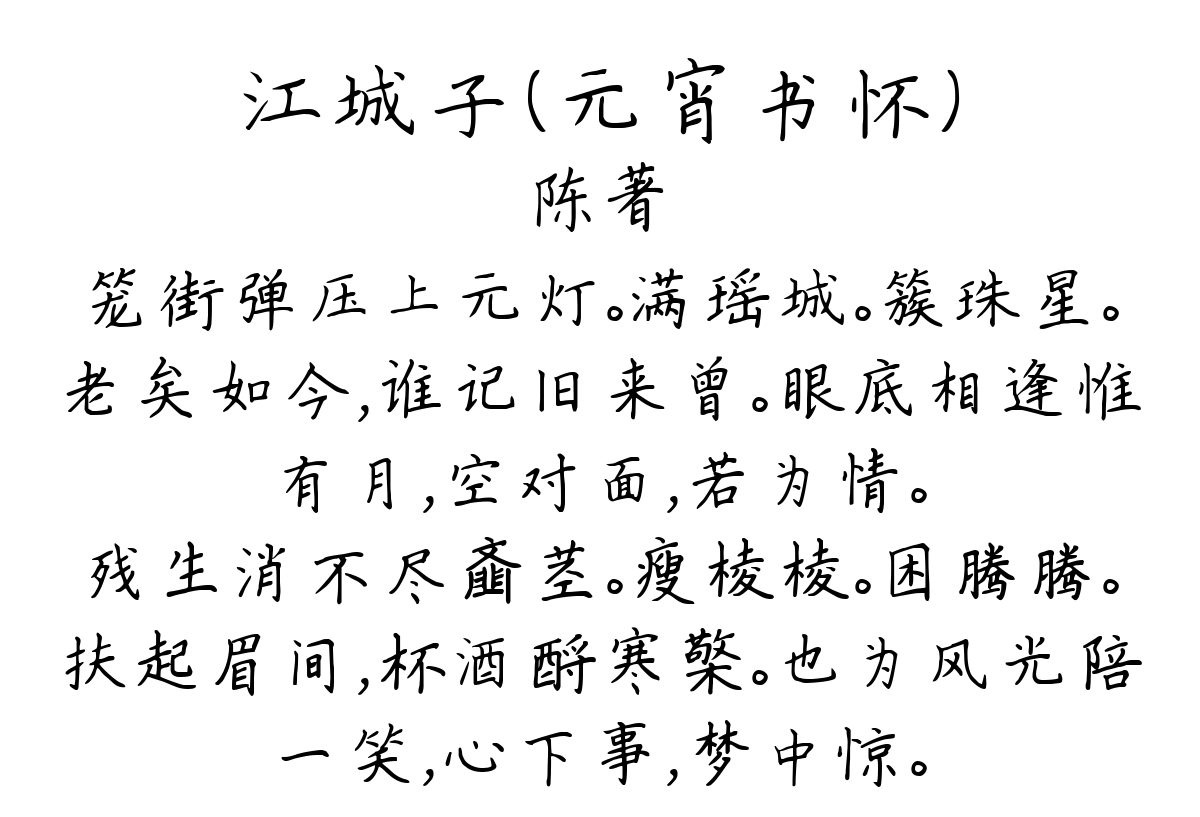 江城子(元宵书怀)
陈著
笼街弹压上元灯。满瑶城。簇珠星。
老矣如今,谁记旧来曾。眼底相逢惟
有月,空对面,若为情。
残生消不尽齑茎。瘦棱棱。困腾腾。
扶起眉间,杯酒酹寒檠。也为风光陪
一笑,心下事,梦中惊。